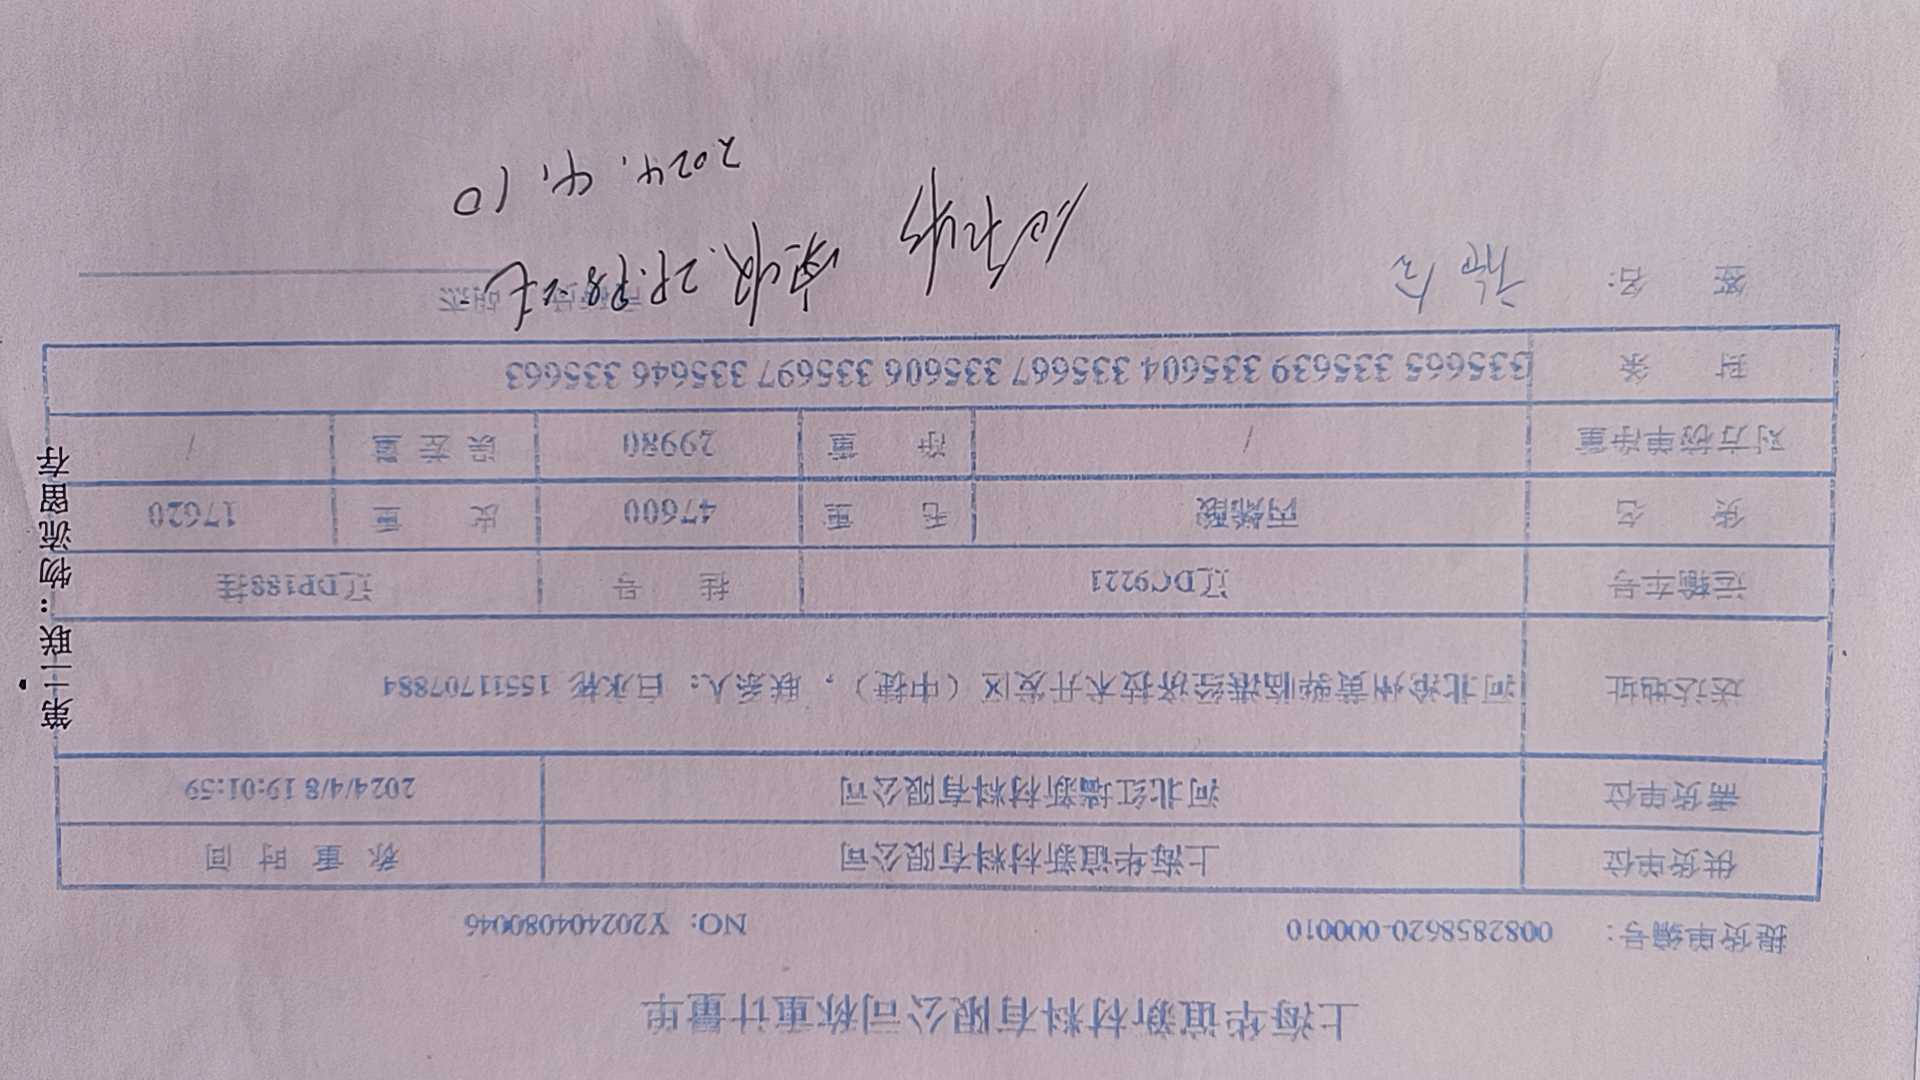 上海华谊新材料有限公司称重计量单
提货单编号: 0082858620-000010 NO: Y202404080046
供货单位 上海华谊新材料有限公司 称重时间
需货单位 河北红墙新材料有限公司 2024/4/8 19:01:59
送达地址 河北沧州黄骅临港经济技术开发区（中捷）, 联系人: 白永彬 15511707884
运输车号 辽DC9221 挂号 辽DP188挂
货名 丙烯酸 毛重 47600 皮重 17620
对方磅单净重 / 净重 29980 误差量 /
封条 335665 335639 335604 335667 335606 335697 335646 335663
签名:
实收
2024.4.10
第二联：物流留存